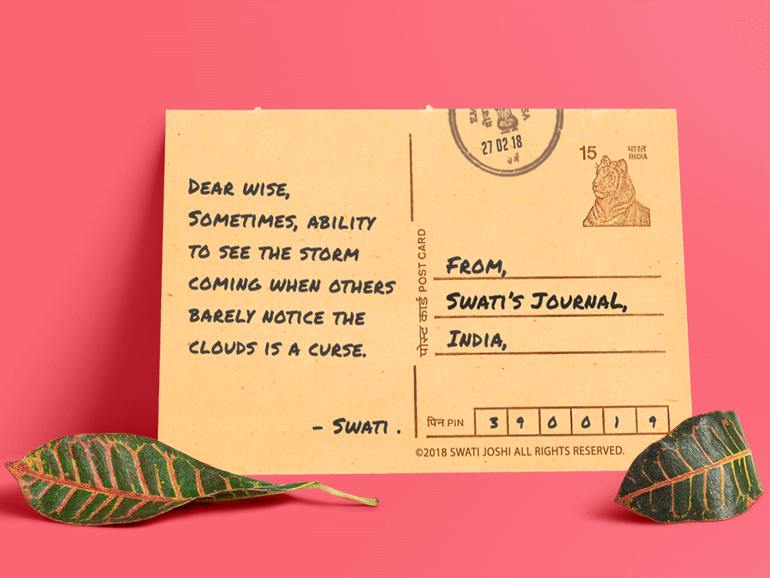 DEAR WISE,
SOMETIMES, ABILITY
TO SEE THE STORM
COMING WHEN OTHERS
BARELY NOTICE THE
CLOUDS IS A CURSE.
- SWATI .
पोस्ट कार्ड POST CARD
27 02 18
15 भारत
INDIA
FROM,
SWATI'S JOURNAL,
INDIA,
पिन PIN 3 9 0 0 1 9
©2018 SWATI JOSHI ALL RIGHTS RESERVED.